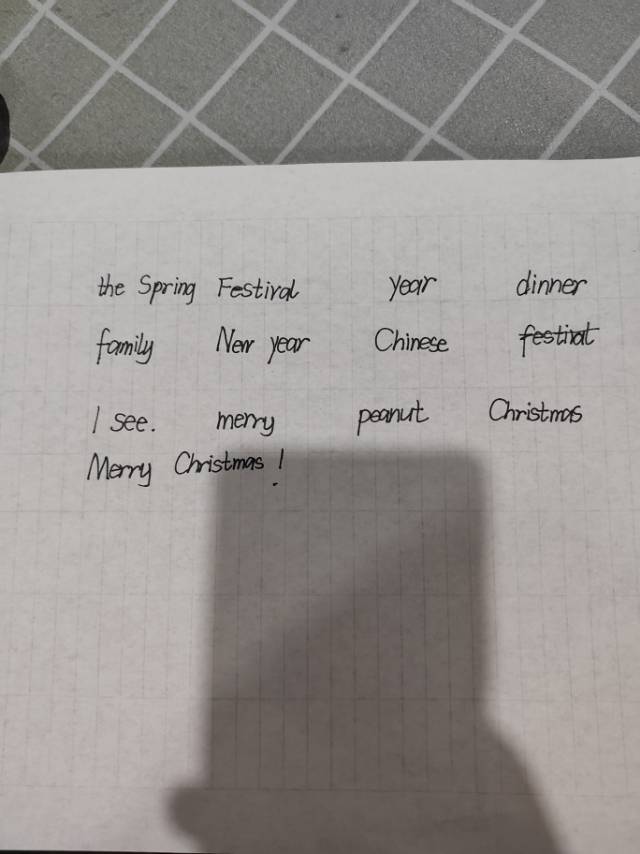 the Spring Festival year dinner
family New year Chinese festival
I see. merry peanut Christmas
Merry Christmas!